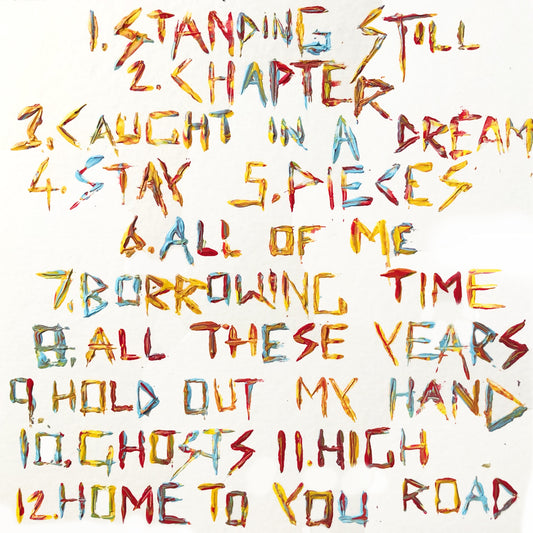 1.STANDING STILL
2.CHAPTER
3.CAUGHT IN A DREAM
4.STAY 5.PIECES
6.ALL OF ME
7.BORROWING TIME
8.ALL THESE YEARS
9.HOLD OUT MY HAND
10.GHOSTS 11.HIGH
12.HOME TO YOU ROAD